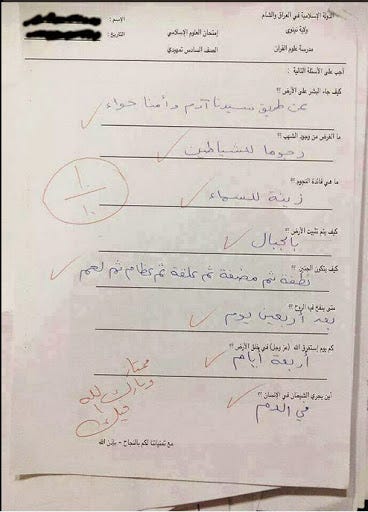 الدولة الإسلامية في العراق والشام
الإسم :
ولاية نينوى
إمتحان العلوم الإسلامي
التاريخ :
مدرسة علوم القرآن
الصف السادس تمهيدي
أجب على الأسئلة التالية :
كيف جاء البشر على الأرض ؟؟
عن طريق سيدنا آدم وأمنا حواء
ما الغرض من وجود الشهب ؟؟
رجوما للشياطين
ما هي فائدة النجوم ؟؟
زينة للسماء
١٠
١٠
كيف يتم تثبيت الأرض ؟؟
بالجبال
كيف يتكون الجنين ؟؟
نطفة ثم مضغة ثم علقة ثم عظام ثم لحم
متى ينفخ فيه الروح ؟؟
بعد أربعين يوم
كم يوم إستغرق الله (عز وجل) في خلق الأرض ؟؟
أربعة أيام
أين يجري الشيطان في الإنسان ؟؟
في الدم
ممتاز
وبارك الله
فيك
مع تمنياتنا لكم بالنجاح - بإذن الله